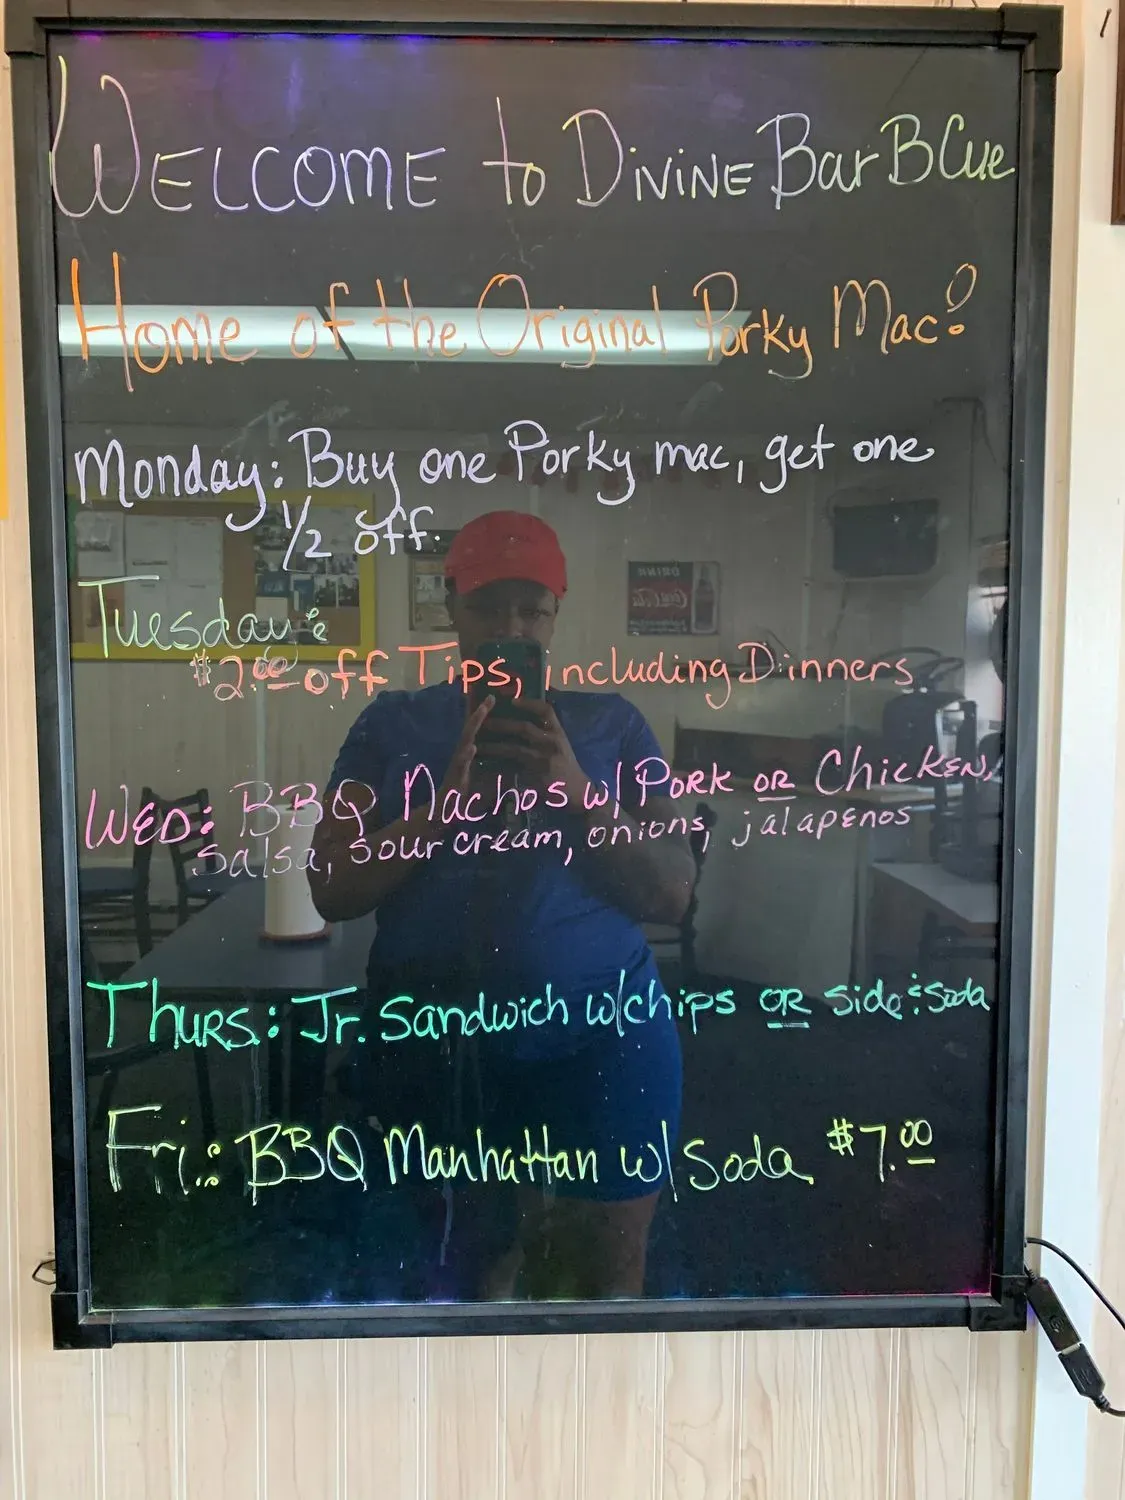 WELCOME to DiViNE Bar BCue
Home of the Original Porky Mac!
Monday: Buy one Porky mac, get one
1/2 off.
Tuesday:
$2.00 off Tips, including Dinners
WED: BBQ Nachos w/ PORK OR ChicKEN,
salsa, sour cream, onions, jalapenos
DRINK
Coca-Cola
ThURS.: Jr. Sandwich w/chips OR side & Soda
Fri.: BBQ Manhattan w/ Soda $7.00